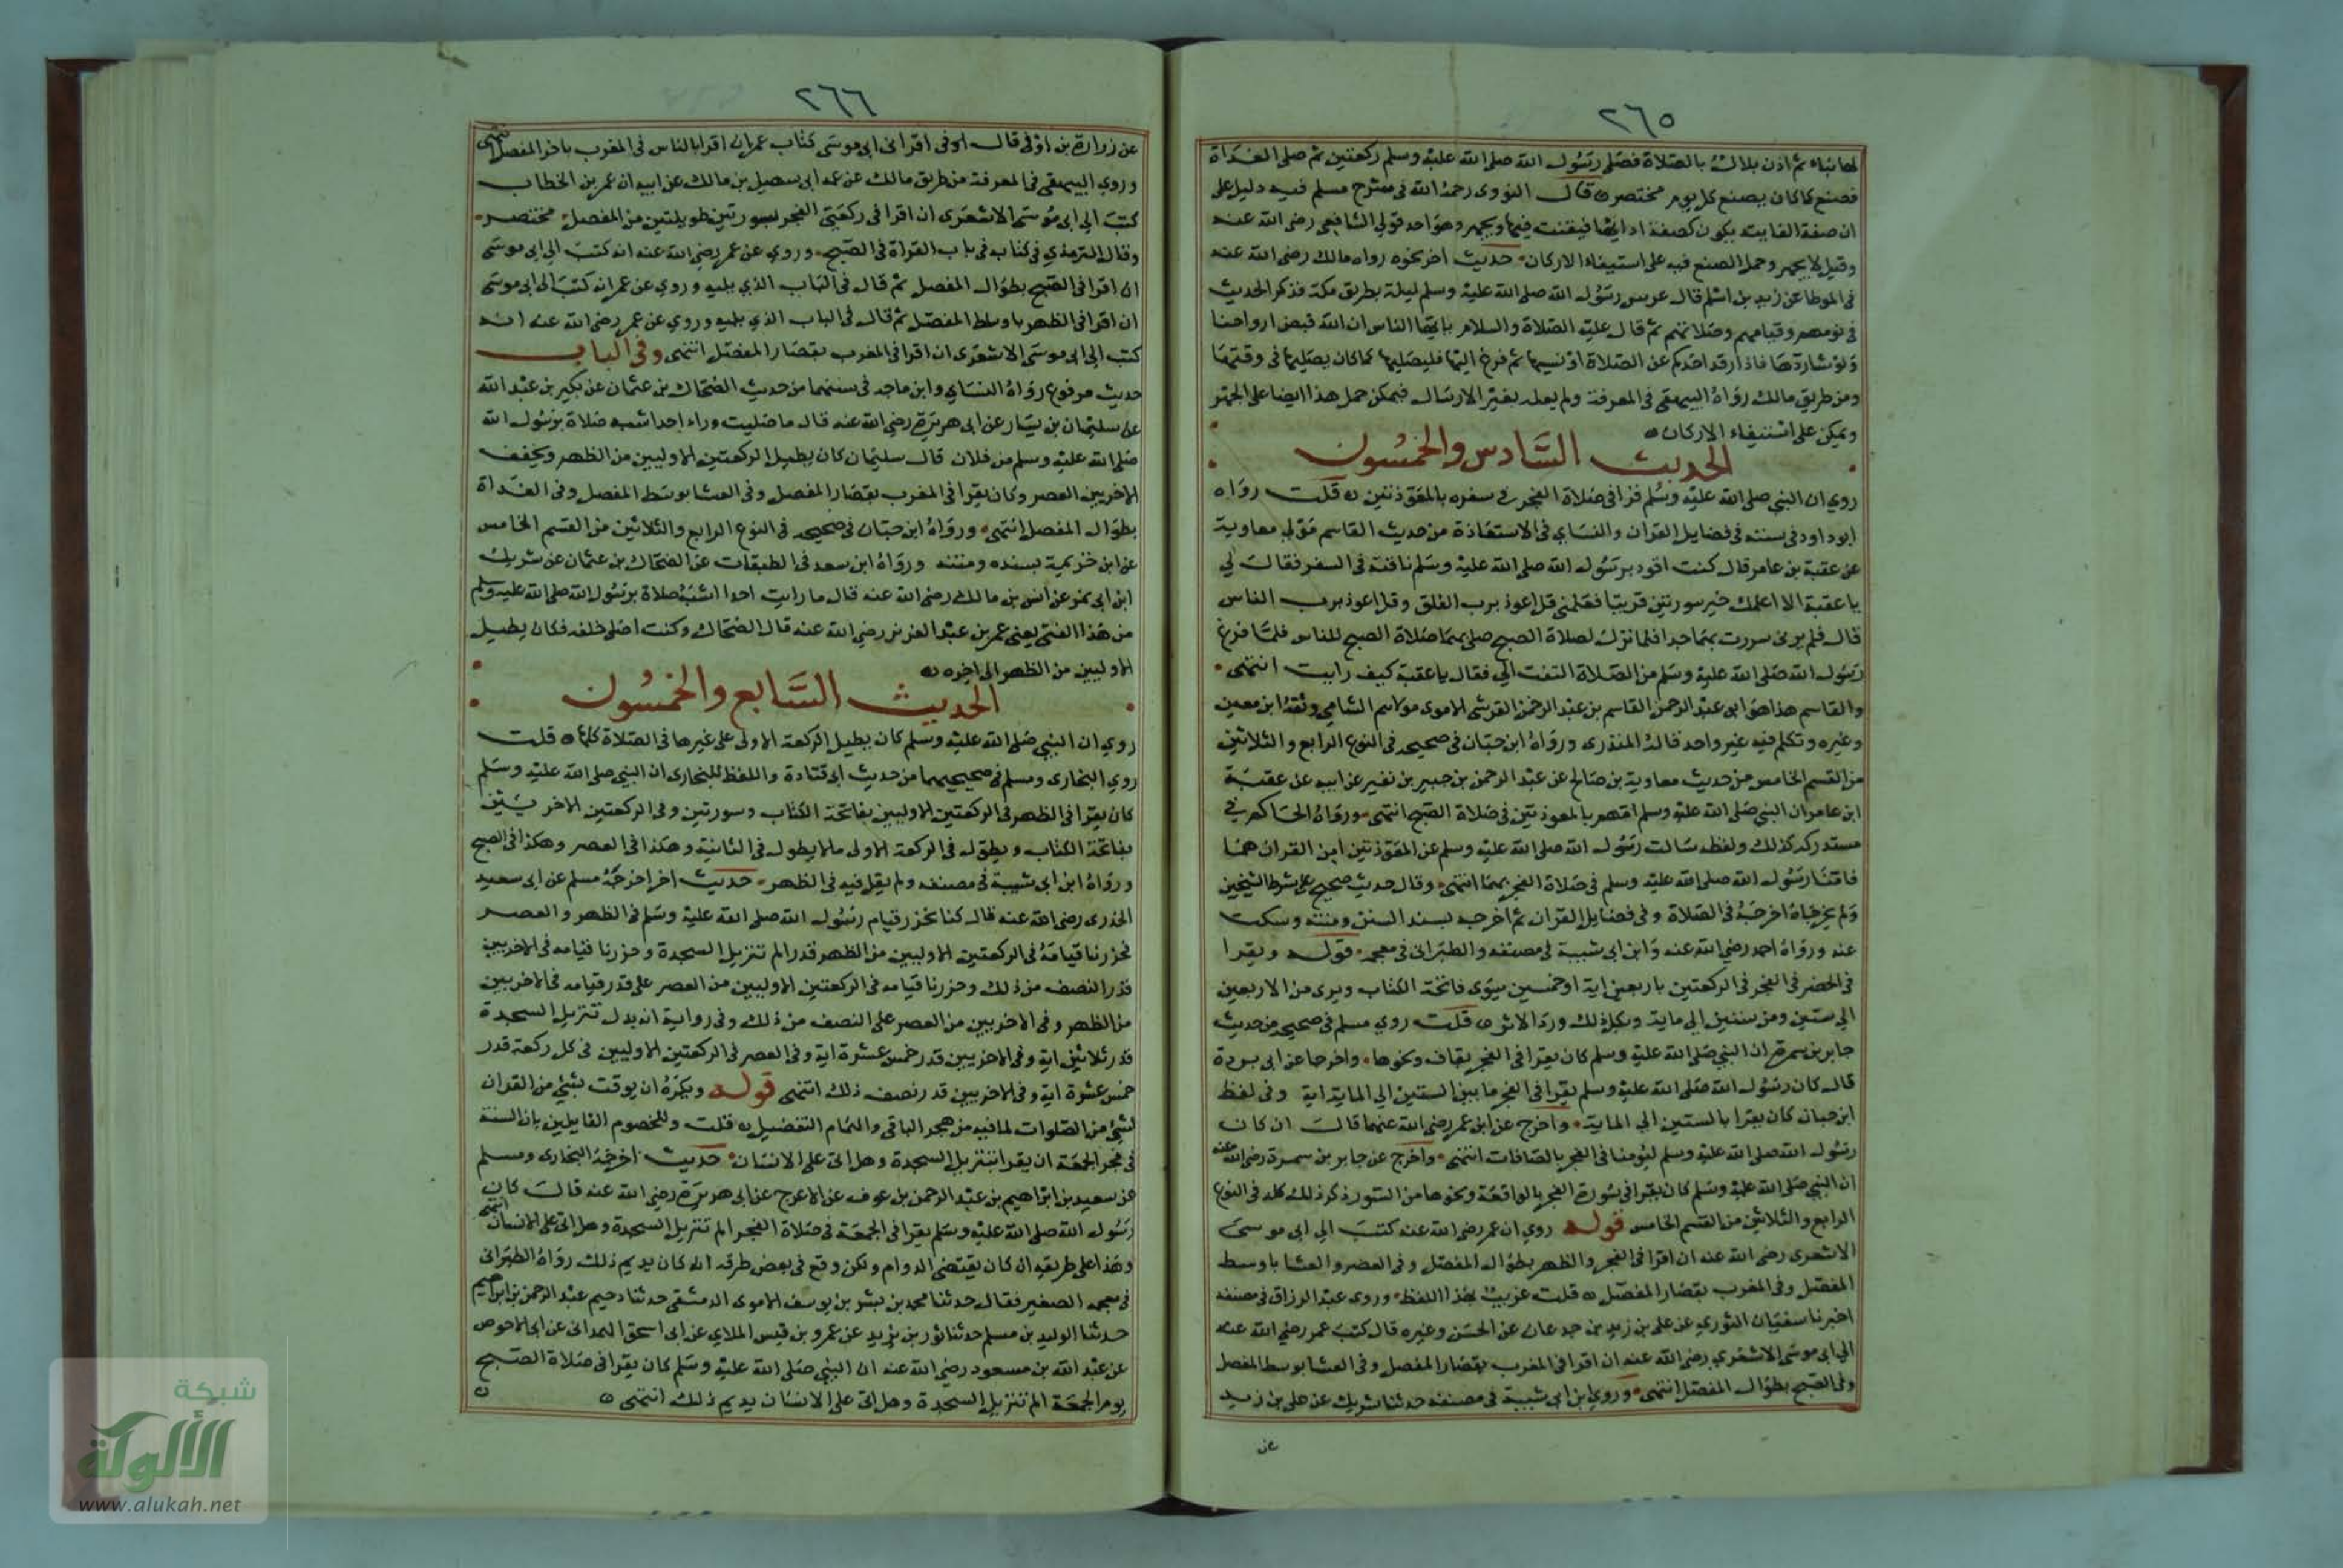 ٢٦٥
لها نباء ثم اذن بلال بالصلاة فصلى رسول الله صلى الله عليه وسلم ركعتين ثم صلى الغداة
فصنع كما كان يصنع كل يوم مختصر قال النووي رحمه الله في شرح مسلم فيه دليل على
ان صفة الفايت يكون كصفة ادايها فيقنت فيها ويجهر وهو احد قولي الشافعي رضي الله عنه
وقيل لا يجهر وحمل الصنع فيه على استيفاء الاركان حديث اخر نحوه رواه مالك رضي الله عنه
في الموطا عن زيد بن اسلم قال عرس رسول الله صلى الله عليه وسلم ليلة بطريق مكة فذكر الحديث
في نومهم وقيامهم وصلاتهم ثم قال عليه الصلاة والسلام يا ايها الناس ان الله قبض ارواحنا
ولو شا ردها فاذا رقد احدكم عن الصلاة او نسيها ثم فرغ اليها فليصليها كما كان يصليها في وقتها
ومن طريق مالك رواه البيهقي في المعرفة ولم يعله بغير الارسال فيمكن حمل هذا ايضا على الجهر
ويمكن على استيفاء الاركان
الحديث السادس والخمسون
روي ان النبي صلى الله عليه وسلم قرا في صلاة الفجر في سفره بالمعوذتين قلت رواه
ابو داود في سننه في فضايل القران والنساي في الاستعاذة من حديث القاسم مولي معاوية
عن عقبة بن عامر قال كنت اقود برسول الله صلى الله عليه وسلم ناقته في السفر فقال لي
يا عقبة الا اعلمك خير سورتين قريتا فعلمني قل اعوذ برب الفلق وقل اعوذ برب الناس
قال فلم يرني سررت بهما جدا فلما نزل لصلاة الصبح صلى بهما صلاة الصبح للناس فلما فرغ
رسول الله صلى الله عليه وسلم من الصلاة التفت الي فقال يا عقبة كيف رايت انتهى
والقاسم هذا هو ابو عبد الرحمن القاسم بن عبد الرحمن القرشي الاموي مولاهم الشامي وثقه ابن معين
وغيره وتكلم فيه غير واحد قاله المنذري ورواه ابن حبان في صحيحه في النوع الرابع والثلاثين
من القسم الخامس من حديث معاوية بن صالح عن عبد الرحمن بن جبير بن نفير عن ابيه عن عقبة
ابن عامر ان النبي صلى الله عليه وسلم امهم بالمعوذتين في صلاة الصبح انتهى ورواه الحاكم في
مستدركه كذلك ولفظه سالت رسول الله صلى الله عليه وسلم عن المعوذتين امن القران هما
فامنا رسول الله صلى الله عليه وسلم في صلاة الفجر بهما انتهى وقال حديث صحيح على شرط الشيخين
ولم يخرجاه اخرجه في الصلاة وفي فضايل القران ثم اخرجه بسند السنن ومتنه وسكت
عنه ورواه احمد رضي الله عنه وابن ابي شيبة في مصنفه والطبراني في معجمه قوله ويقرا
في الحضر في الفجر في الركعتين باربعين اية او خمسين سوى فاتحة الكتاب ويروى من الاربعين
الي ستين ومن ستين الي ماية وبكل ذلك ورد الاثر قلت روي مسلم في صحيحه من حديث
جابر بن سمرة ان النبي صلى الله عليه وسلم كان يقرا في الفجر بقاف ونحوها واخرجا عن ابي برزة
قال كان رسول الله صلى الله عليه وسلم يقرا في الفجر ما بين الستين الي الماية اية وفي لفظ
ابن حبان كان يقرا بالستين الي الماية واخرج عن ابن عمر رضي الله عنهما قال ان كان
رسول الله صلى الله عليه وسلم ليؤمنا في الفجر بالصافات انتهى واخرج عن جابر بن سمرة رضي الله عنه
ان النبي صلى الله عليه وسلم كان يقرا في سورة الفجر بالواقعة ونحوها من السور ذكر ذلك كله في النوع
الرابع والثلاثين من القسم الخامس قوله روي ان عمر رضي الله عنه كتب الي ابي موسى
الاشعرى رضي الله عنه ان اقرا في الفجر والظهر بطوال المفصل وفي العصر والعشا باوسط
المفصل وفي المغرب بقصار المفصل قلت غريب بهذا اللفظ وروى عبد الرزاق في مصنفه
اخبرنا سفيان الثوري عن علي بن زيد بن جدعان عن الحسن وغيره قال كتب عمر رضي الله عنه
الي ابي موسى الاشعري رضي الله عنه ان اقرا في المغرب بقصار المفصل وفي العشا بوسط المفصل
وفي الصبح بطوال المفصل انتهى وروي ابن ابي شيبة في مصنفه حدثنا شريك عن علي بن زيد
عن
٢٦٦
عن زرارة بن اوفى قال اوفى اقراني ابي موسى كتاب عمر ان اقرا بالناس في المغرب باخر المفصل انتهى
وروي البيهقي في المعرفة من طريق مالك عن عمه ابي سهيل بن مالك عن ابيه ان عمر بن الخطاب
كتب الي ابي موسى الاشعرى ان اقرا في ركعتي الفجر بسورتين طويلتين من المفصل مختصر
وقال الترمذي في كتابه في باب القراة في الصبح وروي عن عمر رضي الله عنه انه كتب الي ابي موسى
ان اقرا في الصبح بطوال المفصل ثم قال في الباب الذي يليه وروي عن عمر انه كتب الى ابي موسى
ان اقرا في الظهر باوساط المفصل ثم قال في الباب الذي يليه وروي عن عمر رضي الله عنه انه
كتب الي ابي موسى الاشعرى ان اقرا في المغرب بقصار المفصل انتهى وفي الباب
حديث مرفوع رواه النساي وابن ماجه في سننهما من حديث الضحاك بن عثمان عن بكير بن عبد الله
عن سليمان بن يسار عن ابي هريرة رضي الله عنه قال ما صليت وراء احد اشبه صلاة برسول الله
صلى الله عليه وسلم من فلان قال سليمان كان يطيل الركعتين الاوليين من الظهر ويخفف
الاخريين العصر وكان يقرا في المغرب بقصار المفصل وفي العشا بوسط المفصل وفي الغداة
بطوال المفصل انتهى ورواه ابن حبان في صحيحه في النوع الرابع والثلاثين من القسم الخامس
عن ابن خزيمة بسنده ومتنه ورواه ابن سعد في الطبقات عن الضحاك بن عثمان عن شريك
ابن ابي نمر عن انس بن مالك رضي الله عنه قال ما رايت احدا اشبه صلاة برسول الله صلى الله عليه وسلم
من هذا الفتى يعني عمر بن عبد العزيز رضي الله عنه قال الضحاك وكنت اصلي خلفه فكان يطيل
الاوليين من الظهر الى اخره
الحديث السابع والخمسون
روي ان النبي صلى الله عليه وسلم كان يطيل الركعة الاولى على غيرها في الصلاة كلها قلت
روي البخاري ومسلم في صحيحيهما من حديث ابي قتادة واللفظ للبخاري ان النبي صلى الله عليه وسلم
كان يقرا في الظهر في الركعتين الاوليين بفاتحة الكتاب وسورتين وفي الركعتين الاخريين
بفاتحة الكتاب ويطول في الركعة الاولى ما لا يطول في الثانية وهكذا في العصر وهكذا في الصبح
ورواه ابن ابي شيبة في مصنفه ولم يقل فيه في الظهر حديث اخر اخرجه مسلم عن ابي سعيد
الخدرى رضي الله عنه قال كنا نحزر قيام رسول الله صلى الله عليه وسلم في الظهر والعصر
فحزرنا قيامه في الركعتين الاوليين من الظهر قدر الم تنزيل السجدة وحزرنا قيامه في الاخريين
قدر النصف من ذلك وحزرنا قيامه في الركعتين الاوليين من العصر على قدر قيامه في الاخريين
من الظهر وفي الاخريين من العصر على النصف من ذلك وفي رواية انه بدل تنزيل السجدة
قدر ثلاثين اية وفي الاخريين قدر خمس عشرة اية وفي العصر في الركعتين الاوليين في كل ركعة قدر
خمس عشرة اية وفي الاخريين قدر نصف ذلك انتهى قوله ويكره ان يوقت بشئ من القران
لشئ من الصلوات لما فيه من هجر الباقي وايهام التفضيل قلت وللخصوم القايلين بان السنة
في فجر الجمعة ان يقرا بتنزيل السجدة وهل اتى على الانسان حديث اخرجه البخاري ومسلم
عن سعيد بن ابراهيم بن عبد الرحمن بن عوف عن الاعرج عن ابي هريرة رضي الله عنه قال كان
رسول الله صلى الله عليه وسلم يقرا في الجمعة في صلاة الفجر الم تنزيل السجدة وهل اتى على الانسان انتهى
وهذا على طريقه ان كان يقتضي الدوام ولكن وقع في بعض طرقه انه كان يديم ذلك رواه الطبراني
في معجمه الصغير فقال حدثنا محمد بن بشر بن يوسف الاموى الدمشقي حدثنا دحيم عبد الرحمن بن ابراهيم
حدثنا الوليد بن مسلم حدثنا ثور بن يزيد عن عمرو بن قيس الملاي عن ابي اسحق الهمداني عن ابي الاحوص
عن عبد الله بن مسعود رضي الله عنه ان النبي صلى الله عليه وسلم كان يقرا في صلاة الصبح
يوم الجمعة الم تنزيل السجدة وهل اتى على الانسان يديم ذلك انتهى
شبكة
الألوكة
www.alukah.net